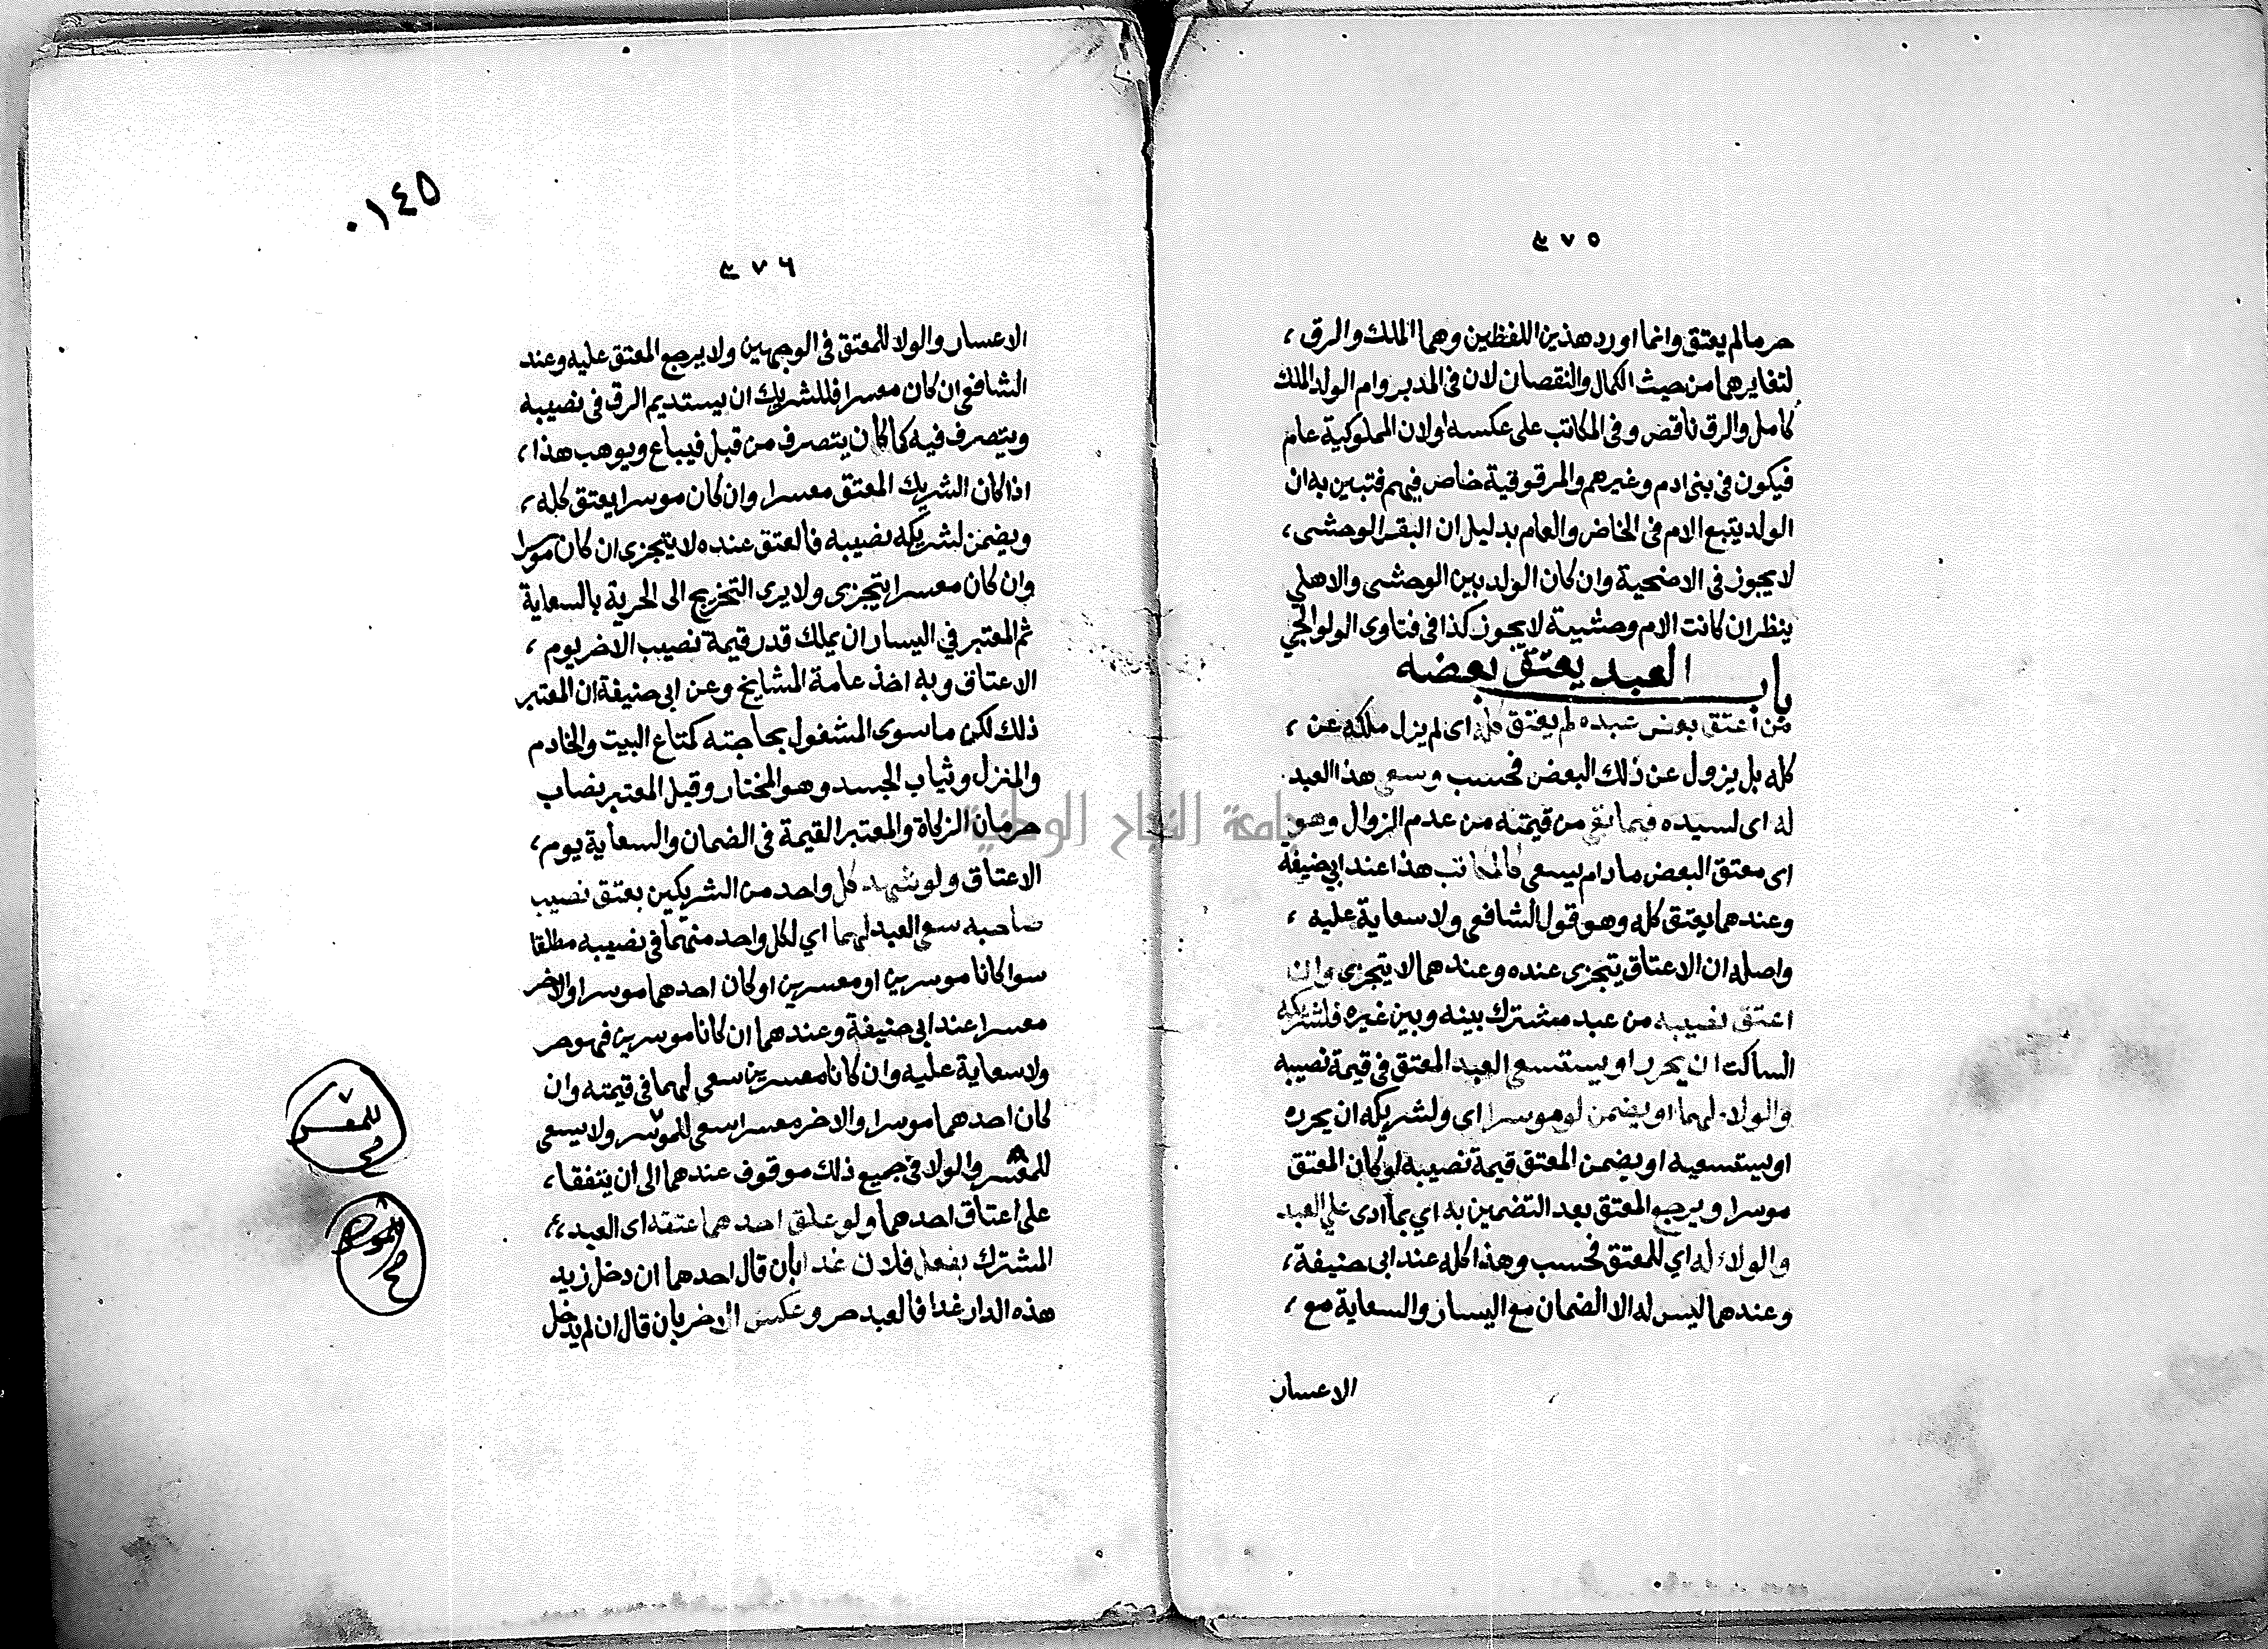 ٤٧٥
حر مالم يعتق وانما اورد هذين اللفظين وهما الملك والرق ،
لتغايرهما من حيث الكمال والنقصان لان في المدبر وام الولد الملك
كامل والرق ناقص وفى المكاتب على عكسه اولان المملوكية عام
فيكون فى بنى ادم وغيرهم والمرقوقية خاص فيهم فتبين به ان
الولد يتبع الام فى الخاص والعام بدليل ان البقر الوحشى ،
لا يجوز فى الاضحية وان كان الولد بين الوحشى والاهلي
ينظر ان كانت الام وحشية لا يجوز كذا فى فتاوى الولوالجي
باب العبد يعتق بعضه
من اعتق بعض عبده لم يعتق كله اى لم يزل ملكه عن ،
كله بل يزول عن ذلك البعض فحسب وسعى هذا العبد
له اى لسيده فيما بقي من قيمته من عدم الزوال وهو
اى معتق البعض مادام يسعى كالمكاتب هذا عند ابي حنيفة
وعندهما يعتق كله وهو قول الشافعى ولا سعاية عليه ،
واصله ان الاعتاق يتجزى عنده وعندهما لا يتجزى وان
اعتق نصيبه من عبد مشترك بينه وبين غيره فلشريكه
الساكت ان يحرر او يستسعى العبد المعتق فى قيمة نصيبه
والولاء لهما او يضمن لو موسرا اى ولشريكه ان يحرره
او يستسعيه او يضمن المعتق قيمة نصيبه لو كان المعتق
موسرا ويرجع المعتق بعد التضمين به اي بما ادى علي العبد
والولاء له اي للمعتق فحسب وهذا كله عند ابى حنيفة ،
وعندهما ليس له الا الضمان مع اليسار والسعاية مع ،
الاعسار
٠١٤٥
٤٧٦
الاعسار والولا للمعتق فى الوجهين ولا يرجع المعتق عليه وعند
الشافعى ان كان معسرا فللشريك ان يستديم الرق فى نصيبه
ويتصرف فيه كما كان يتصرف من قبل فيباع ويوهب هذا ،
اذا كان الشريك المعتق معسرا وان كان موسرا يعتق كله ،
ويضمن لشريكه نصيبه فالعتق عنده لا يتجزى ان كان موسرا
وان كان معسرا يتجزى ولا يرى التخريج الى الحرية بالسعاية
ثم المعتبر في اليسار ان يملك قدر قيمة نصيب الاخر يوم ،
الاعتاق وبه اخذ عامة المشايخ وعن ابى حنيفة ان المعتبر
ذلك لكن ما سوى المشغول بحاجته كمتاع البيت والخادم
والمنزل وثياب الجسد وهو المختار وقيل المعتبر نصاب
حرمان الزكاة والمعتبر القيمة فى الضمان والسعاية يوم ،
الاعتاق ولو شهد كل واحد من الشريكين بعتق نصيب
صاحبه سعى العبد لهما اي لكل واحد منهما فى نصيبه مطلقا
سوا كانا موسرين او معسرين او كان احدهما موسرا والاخر
معسرا عند ابى حنيفة وعندهما ان كانا موسرين فهو حر
ولا سعاية عليه وان كانا معسرين سعى لهما فى قيمته وان
كان احدهما موسرا والاخر معسرا سعى للموسر ولا يسعى
للمعسر والولا فى جميع ذلك موقوف عندهما الى ان يتفقا ،
على اعتاق احدهما ولو علق احدهما عتقه اى العبد ،
المشترك بفعل فلان غدا بأن قال احدهما ان دخل زيد
هذه الدار غدا فالعبد حر وعكس الاخر بان قال ان لم يدخل
٧
للمعسر
صح
٨
للموسر
صح
جامعة النجاح الوطنية